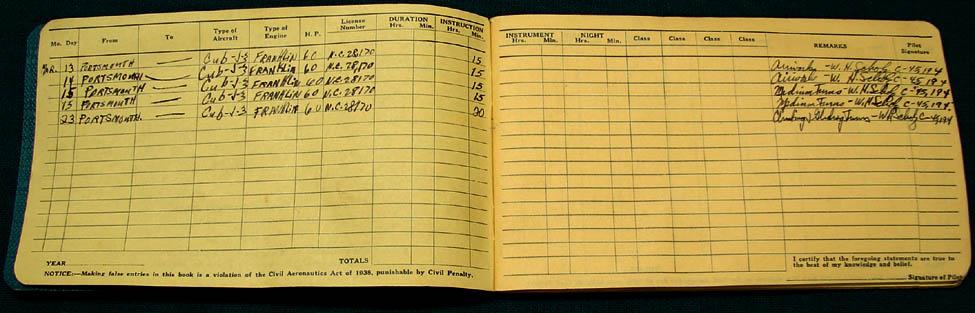 Mo. Day From To Type of Aircraft Type of Engine H. P. License Number DURATION Hrs. Min. INSTRUCTION Hrs. Min. INSTRUMENT Hrs. Min. NIGHT Hrs. Min. Class Class Class Class REMARKS Pilot Signature
13 PORTSMOUTH — Cub-J3 FRANKLIN 60 N.C. 28170 15 Airwork - W. H. C-45,194
14 PORTSMOUTH — Cub-J3 FRANKLIN 60 N.C. 28170 15 Airwork - W. H. C-45,194
15 PORTSMOUTH — Cub-J3 FRANKLIN 60 N.C. 28170 15 Medium Turns - W. H. C-45,194
15 PORTSMOUTH — Cub-J3 FRANKLIN 60 N.C. 28170 15 Medium Turns - W. H. C-45,194
23 PORTSMOUTH — Cub-J3 FRANKLIN 60 N.C. 28170 30 Climbing & Gliding Turns - W. H. C-45,194
YEAR TOTALS
NOTICE:—Making false entries in this book is a violation of the Civil Aeronautics Act of 1938, punishable by Civil Penalty.
I certify that the foregoing statements are true to
the best of my knowledge and belief.
Signature of Pilot